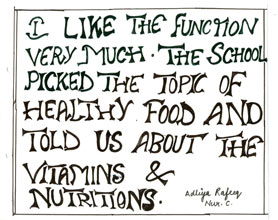 I LIKE THE FUNCTION
VERY MUCH. THE SCHOOL
PICKED THE TOPIC OF
HEALTHY FOOD AND
TOLD US ABOUT THE
VITAMINS &
NUTRITIONS.
Adliya Rafeeq
Nur. C.